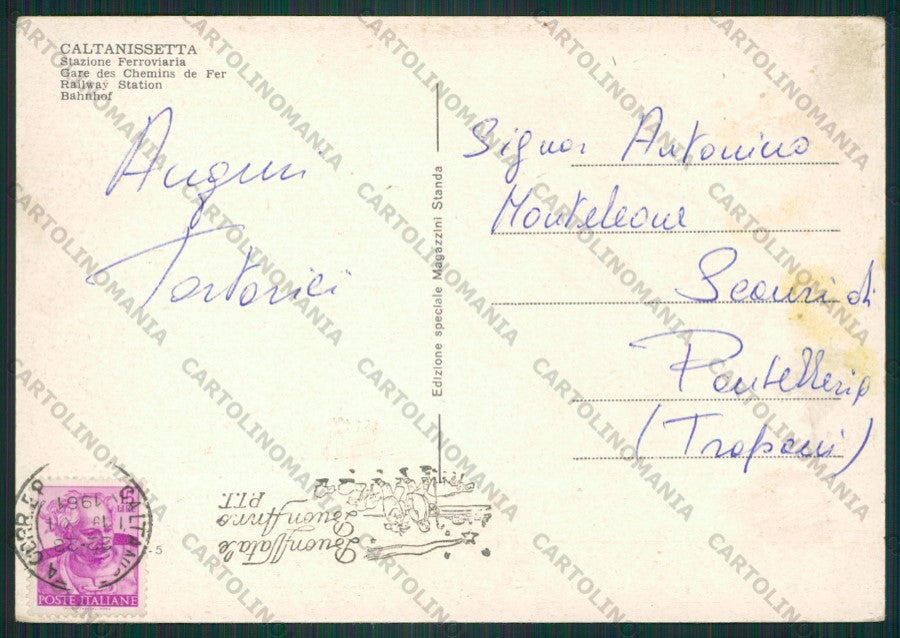 CALTANISSETTA
Stazione Ferroviaria
Gare des Chemins de Fer
Railway Station
Bahnhof
Auguri
Tortorici
Edizione speciale Magazzini Standa
Signor Antonino
Monteleone
Scauri di
Pantelleria
(Trapani)
Buon Natale
Buon Anno
P.T.T.
1961
POSTE ITALIANE
CARTOLINOMANIA